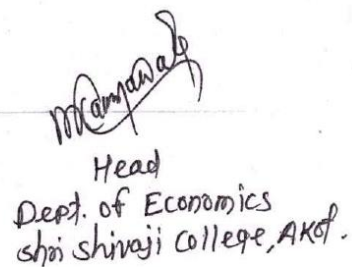 Head
Dept. of Economics
Shri Shivaji College, Akot.